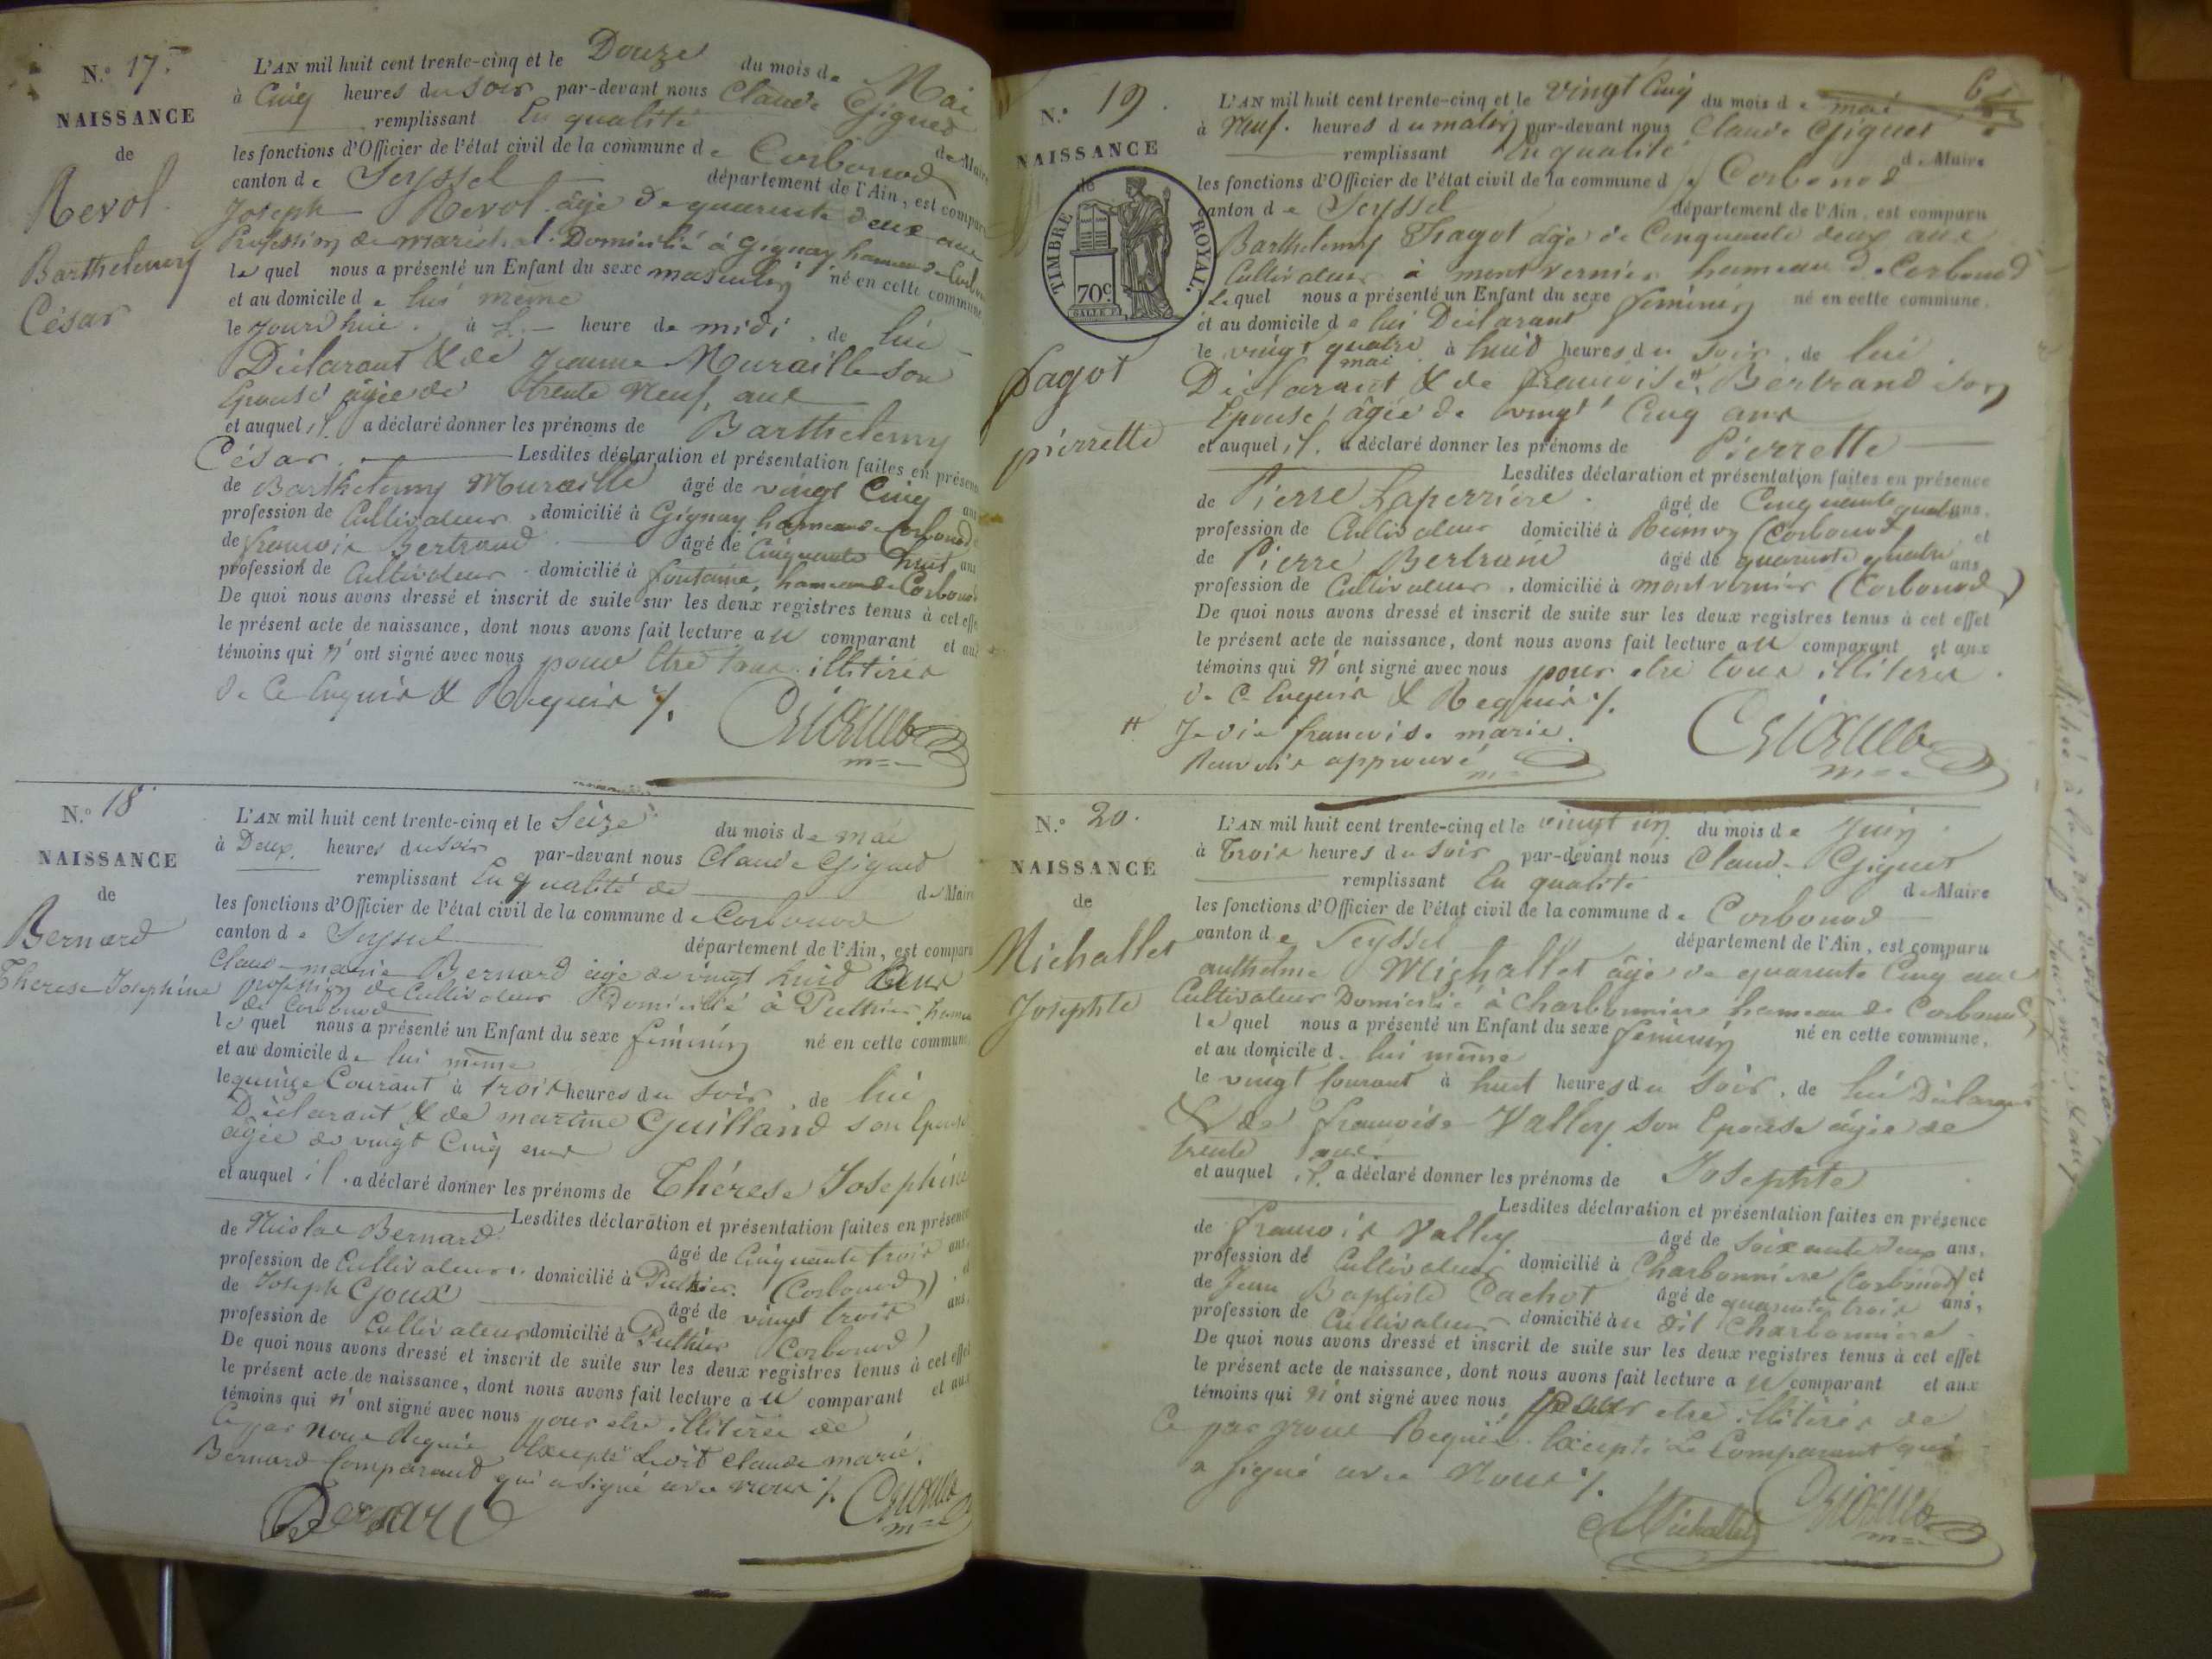 N.° 17.
NAISSANCE
de
Revol
Barthelemy
César
L'AN mil huit cent trente-cinq et le Douze du mois de Mai
à Cinq heures du soir par-devant nous Claude Giguet
remplissant En qualité de Maire
les fonctions d'Officier de l'état civil de la commune de Corbonod
canton de Seyssel département de l'Ain, est comparu
Joseph Revol âgé de quarante deux ans
Profession de maréchal. Domicilié à Gignay hameau de Corbonod
le quel nous a présenté un Enfant du sexe masculin né en cette commune
et au domicile de lui même
le jourd'hui à heure de midi, de lui
Déclarant & de Jeanne Muraille son
Epouse âgée de trente Neuf ans
et auquel il a déclaré donner les prénoms de Barthelemy
César. Lesdites déclaration et présentation faites en présence
de Barthelemy Muraille âgé de vingt Cinq ans
profession de Cultivateur, domicilié à Gignay hameau de Corbonod
de francois Bertrand âgé de Cinquante huit ans
profession de Cultivateur domicilié à fontaine, hameau de Corbonod
De quoi nous avons dressé et inscrit de suite sur les deux registres tenus à cet effet
le présent acte de naissance, dont nous avons fait lecture au comparant et aux
témoins qui n'ont signé avec nous pour être tous illitérés
de Ce Enquis & Requis ./.
Giguet
N.° 18
NAISSANCE
de
Bernard
Therese Josephine
L'AN mil huit cent trente-cinq et le Seize du mois de mai
à Deux heures du soir par-devant nous Claude Giguet
remplissant En qualité de de Maire
les fonctions d'Officier de l'état civil de la commune de Corbonod
canton de Seyssel département de l'Ain, est comparu
Claude marie Bernard âgé de vingt huit ans
profession de Cultivateur Domicilié à Puthier hameau
de Corbonod
le quel nous a présenté un Enfant du sexe féminin né en cette commune
et au domicile de lui même
le quinze Courant à trois heures du soir, de lui
Déclarant & de martine Guilland son Epouse
âgée de vingt Cinq ans
et auquel il a déclaré donner les prénoms de Thérese Josephine
Lesdites déclaration et présentation faites en présence
de Nicolas Bernard âgé de Cinquante trois ans
profession de Cultivateur domicilié à Puthier (Corbonod)
de Joseph Goux âgé de vingt trois ans
profession de Cultivateur domicilié à Puthier Corbonod
De quoi nous avons dressé et inscrit de suite sur les deux registres tenus à cet effet
le présent acte de naissance, dont nous avons fait lecture au comparant et aux
témoins qui n'ont signé avec nous pour etre illitérés de
Ce par nous Requis Excepté Ledit Claude marie
Bernard Comparant qui a signé avec nous ./.
Bernard
Giguet
N.° 19.
NAISSANCE
de
TIMBRE ROYAL.
70c
fagot
pierrette
L'AN mil huit cent trente-cinq et le vingt Cinq du mois de mai
à Neuf. heures du matin par-devant nous Claude Giguet
remplissant En qualité de Maire
les fonctions d'Officier de l'état civil de la commune de Corbonod
canton de Seyssel département de l'Ain, est comparu
Barthelemy Fagot âgé de Cinquante deux ans
Cultivateur à mont vernier hameau de Corbonod
Le quel nous a présenté un Enfant du sexe féminin né en cette commune.
et au domicile de lui Déclarant
le vingt quatre mai à huit heures du soir, de lui
Déclarant & de francoise Bertrand son
Epouse âgée de vingt Cinq ans
et auquel il a déclaré donner les prénoms de Pierrette
Lesdites déclaration et présentation faites en présence
de Pierre Laperriere âgé de Cinquante quatre ans,
profession de Cultivateur domicilié à (Corbonod et
de Pierre Bertrand âgé de quarante quatre ans
profession de Cultivateur, domicilié à mont vernier (Corbonod)
De quoi nous avons dressé et inscrit de suite sur les deux registres tenus à cet effet
le présent acte de naissance, dont nous avons fait lecture au comparant et aux
témoins qui n'ont signé avec nous pour etre tous illitérés
de Ce Enquis & Requis ./.
Je dis francoise marie.
Renvois approuvé
Giguet
N.° 20.
NAISSANCE
de
Michallet
Josephte
L'AN mil huit cent trente-cinq et le vingt un du mois de Juin
à Trois heures du soir par-devant nous Claude Giguet
remplissant En qualité de Maire
les fonctions d'Officier de l'état civil de la commune de Corbonod
canton de Seyssel département de l'Ain, est comparu
anthelme Michallet âgé de quarante Cinq ans
Cultivateur Domicilié à Charbonnière hameau de Corbonod
le quel nous a présenté un Enfant du sexe féminin né en cette commune.
et au domicile de lui même
le vingt Courant à huit heures du soir, de lui Déclarant
& de francoise Valley son Epouse âgée de
trente ans
et auquel il a déclaré donner les prénoms de Josephte
Lesdites déclaration et présentation faites en présence
de francois Valley âgé de soixante deux ans,
profession de Cultivateur domicilié à Charbonnière (Corbonod) et
de Jean Baptiste Cachot âgé de quarante trois ans,
profession de Cultivateur domicilié au dit Charbonnière
De quoi nous avons dressé et inscrit de suite sur les deux registres tenus à cet effet
le présent acte de naissance, dont nous avons fait lecture au comparant et aux
témoins qui n'ont signé avec nous pour etre illitérés de
Ce par nous Requis. Excepté Le Comparant qui
a signé avec Nous ./.
Michallet
Giguet